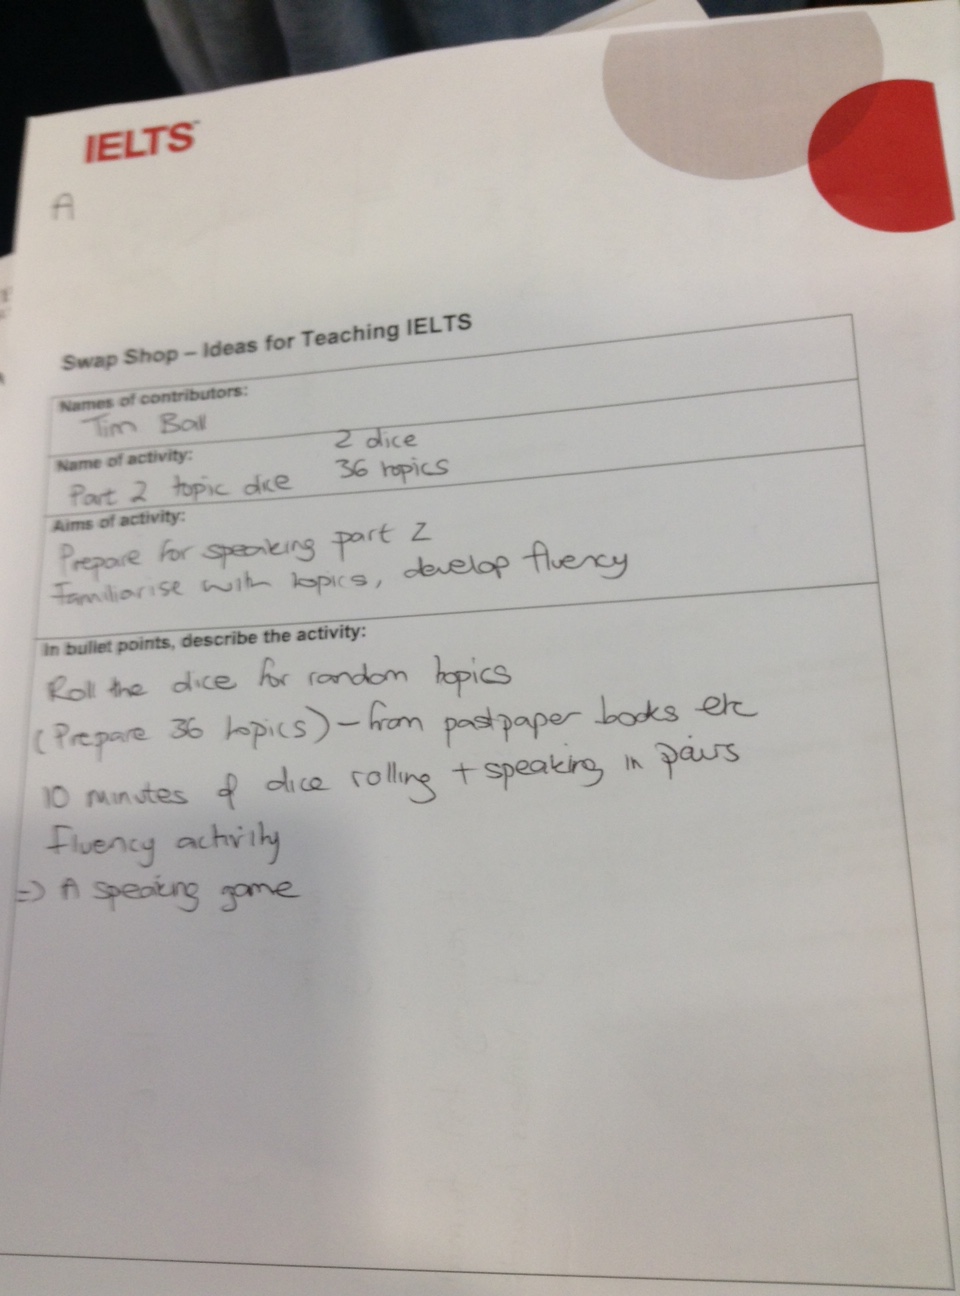 IELTS™
A
Swap Shop – Ideas for Teaching IELTS
Names of contributors:
Tim Ball
Name of activity:
2 dice
Part 2 topic dice
36 topics
Aims of activity:
Prepare for speaking part 2
Familiarise with topics, develop fluency
In bullet points, describe the activity:
Roll the dice for random topics
(Prepare 36 topics) – from pastpaper books etc
10 minutes of dice rolling + speaking in pairs
Fluency activity
=> A speaking game